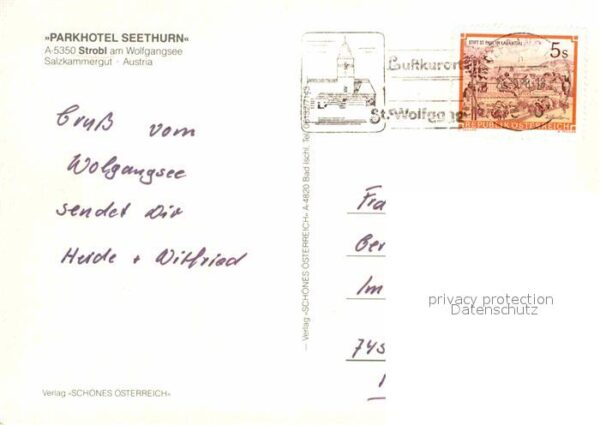 »PARKHOTEL SEETHURN«
A-5350 Strobl am Wolfgangsee
Salzkammergut · Austria
Gruß vom
Wolgangsee
sendet Dir
Heide + Wilfried
Verlag «SCHÖNES ÖSTERREICH»
— Verlag «SCHÖNES ÖSTERREICH» A-4820 Bad Ischl, Tel.
Luftkurort
St. Wolfgang
5s
REPUBLIK ÖSTERREICH
Fra
Ger
Im
745
privacy protection
Datenschutz